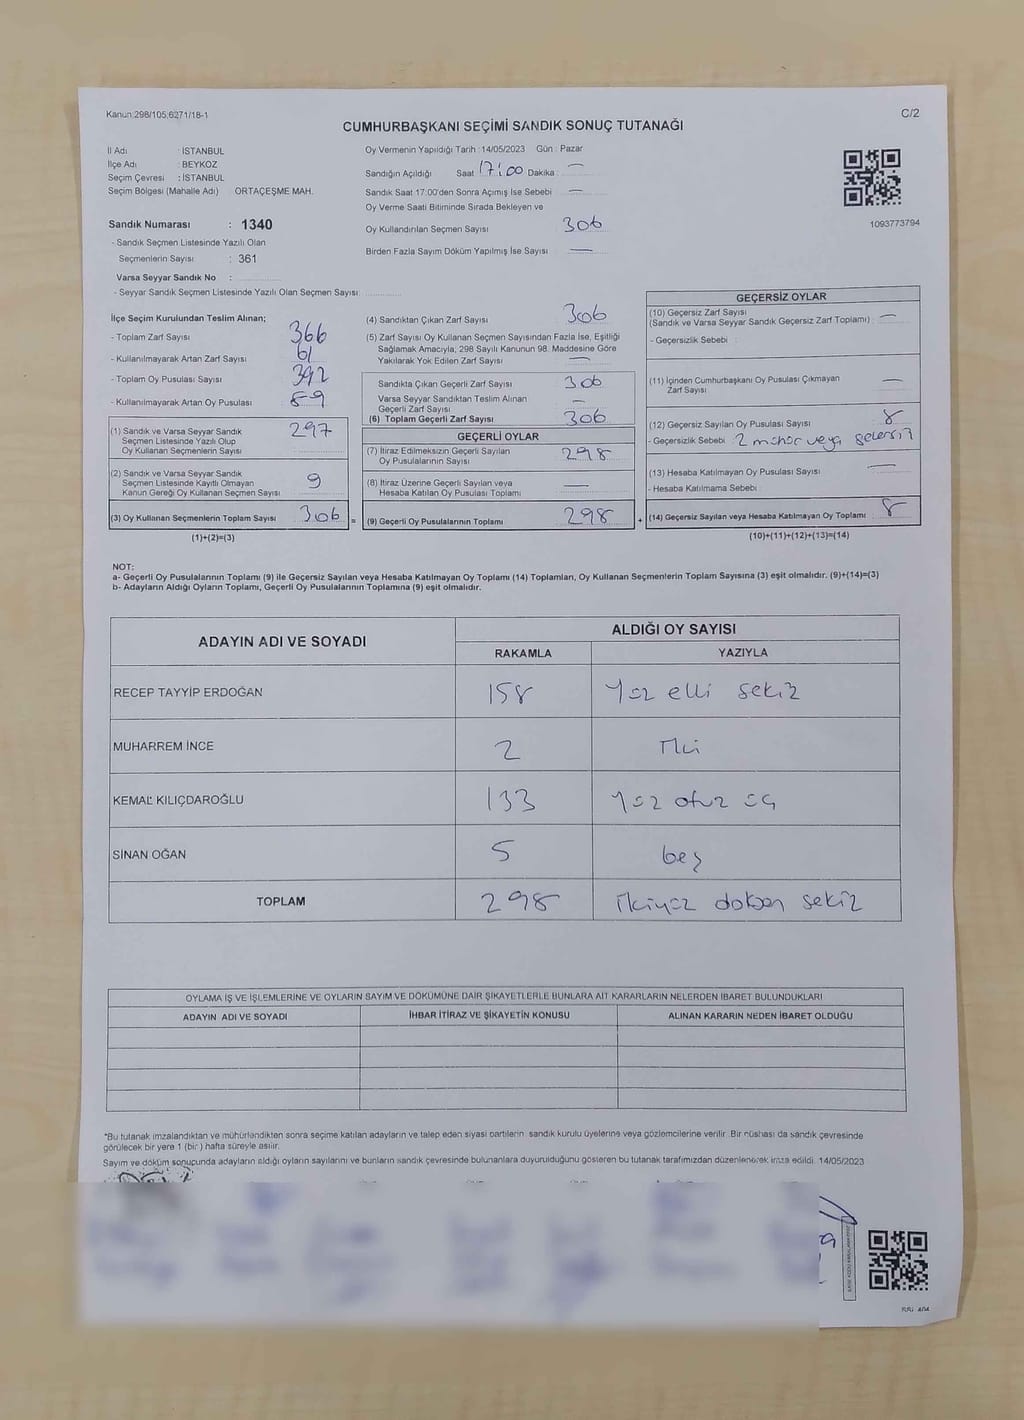 Kanun:298/105,6271/18-1
C/2
CUMHURBAŞKANI SEÇİMİ SANDIK SONUÇ TUTANAĞI
İl Adı : İSTANBUL
İlçe Adı : BEYKOZ
Seçim Çevresi : İSTANBUL
Seçim Bölgesi (Mahalle Adı) : ORTAÇEŞME MAH.
Sandık Numarası : 1340
- Sandık Seçmen Listesinde Yazılı Olan
Seçmenlerin Sayısı : 361
Varsa Seyyar Sandık No :
- Seyyar Sandık Seçmen Listesinde Yazılı Olan Seçmen Sayısı :
Oy Vermenin Yapıldığı Tarih : 14/05/2023 Gün : Pazar
Sandığın Açıldığı Saat 17:00 Dakika : —
Sandık Saat 17.00'den Sonra Açımış İse Sebebi : —
Oy Verme Saati Bitiminde Sırada Bekleyen ve
Oy Kullandırılan Seçmen Sayısı : 306
Birden Fazla Sayım Döküm Yapılmış İse Sayısı : —
1093773794
İlçe Seçim Kurulundan Teslim Alınan;
- Toplam Zarf Sayısı : 366
- Kullanılmayarak Artan Zarf Sayısı : 61
- Toplam Oy Pusulası Sayısı : 392
- Kullanılmayarak Artan Oy Pusulası : 89
(1) Sandık ve Varsa Seyyar Sandık
Seçmen Listesinde Yazılı Olup
Oy Kullanan Seçmenlerin Sayısı : 297
(2) Sandık ve Varsa Seyyar Sandık
Seçmen Listesinde Kayıtlı Olmayan
Kanun Gereği Oy Kullanan Seçmen Sayısı : 9
(3) Oy Kullanan Seçmenlerin Toplam Sayısı : 306 =
(1)+(2)=(3)
(4) Sandıktan Çıkan Zarf Sayısı : 306
(5) Zarf Sayısı Oy Kullanan Seçmen Sayısından Fazla İse, Eşitliği
Sağlamak Amacıyla; 298 Sayılı Kanunun 98. Maddesine Göre
Yakılarak Yok Edilen Zarf Sayısı : —
Sandıkta Çıkan Geçerli Zarf Sayısı : 306
Varsa Seyyar Sandıktan Teslim Alınan
Geçerli Zarf Sayısı : —
(6) Toplam Geçerli Zarf Sayısı : 306
GEÇERLİ OYLAR
(7) İtiraz Edilmeksizin Geçerli Sayılan
Oy Pusulalarının Sayısı : 298
(8) İtiraz Üzerine Geçerli Sayılan veya
Hesaba Katılan Oy Pusulası Toplamı : —
(9) Geçerli Oy Pusulalarının Toplamı : 298 +
GEÇERSİZ OYLAR
(10) Geçersiz Zarf Sayısı
(Sandık ve Varsa Seyyar Sandık Geçersiz Zarf Toplamı) : —
- Geçersizlik Sebebi :
(11) İçinden Cumhurbaşkanı Oy Pusulası Çıkmayan
Zarf Sayısı : —
(12) Geçersiz Sayılan Oy Pusulası Sayısı : 8
- Geçersizlik Sebebi : 2 mühür veya
(13) Hesaba Katılmayan Oy Pusulası Sayısı : —
- Hesaba Katılmama Sebebi :
(14) Geçersiz Sayılan veya Hesaba Katılmayan Oy Toplamı : 8
(10)+(11)+(12)+(13)=(14)
NOT:
a- Geçerli Oy Pusulalarının Toplamı (9) ile Geçersiz Sayılan veya Hesaba Katılmayan Oy Toplamı (14) Toplamları, Oy Kullanan Seçmenlerin Toplam Sayısına (3) eşit olmalıdır. (9)+(14)=(3)
b- Adayların Aldığı Oyların Toplamı, Geçerli Oy Pusulalarının Toplamına (9) eşit olmalıdır.
ADAYIN ADI VE SOYADI
ALDIĞI OY SAYISI
RAKAMLA YAZIYLA
RECEP TAYYİP ERDOĞAN 158 Yüz elli sekiz
MUHARREM İNCE 2 İki
KEMAL KILIÇDAROĞLU 133 Yüz otuz üç
SİNAN OĞAN 5 beş
TOPLAM 298 İkiyüz doksan sekiz
OYLAMA İŞ VE İŞLEMLERİNE VE OYLARIN SAYIM VE DÖKÜMÜNE DAİR ŞİKAYETLERLE BUNLARA AİT KARARLARIN NELERDEN İBARET BULUNDUKLARI
ADAYIN ADI VE SOYADI İHBAR İTİRAZ VE ŞİKAYETİN KONUSU ALINAN KARARIN NEDEN İBARET OLDUĞU
*Bu tutanak imzalandıktan ve mühürlendikten sonra seçime katılan adayların ve talep eden siyasi partilerin sandık kurulu üyelerine veya gözlemcilerine verilir. Bir nüshası da sandık çevresinde
görülecek bir yere 1 (bir) hafta süreyle asılır.
Sayım ve döküm sonucunda adayların aldığı oyların sayılarını ve bunların sandık çevresinde bulunanlara duyurulduğunu gösteren bu tutanak tarafımızdan düzenlenerek imza edildi. 14/05/2023